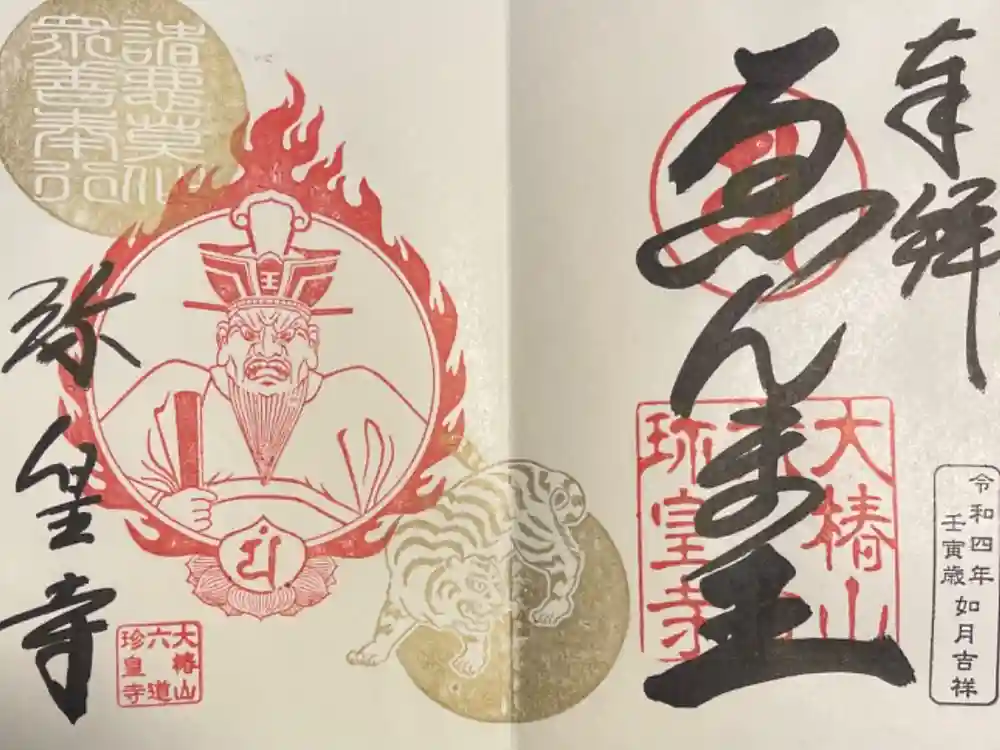 奉拝
ゑんま王
大椿山
珎皇寺
令和四年
壬寅歳
如月吉祥
諸悪莫作
衆善奉行
王
珎皇寺
大椿山
六道
珍皇寺